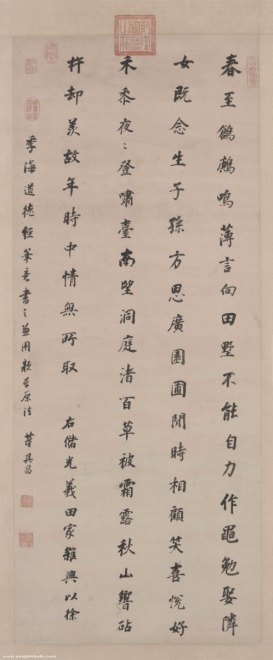 春至鶬鶊鳴薄言向田墅不能自力作黽勉娶隣
女既念生子孫方思廣園圃閒時相顧笑喜悅好
禾黍夜〻登嘯臺南望洞庭渚百草被霜露秋山響砧
杵却羨故年時中情無所取　右儲光義田家雜興以徐
季海道德經筆意書之兼用
董其昌